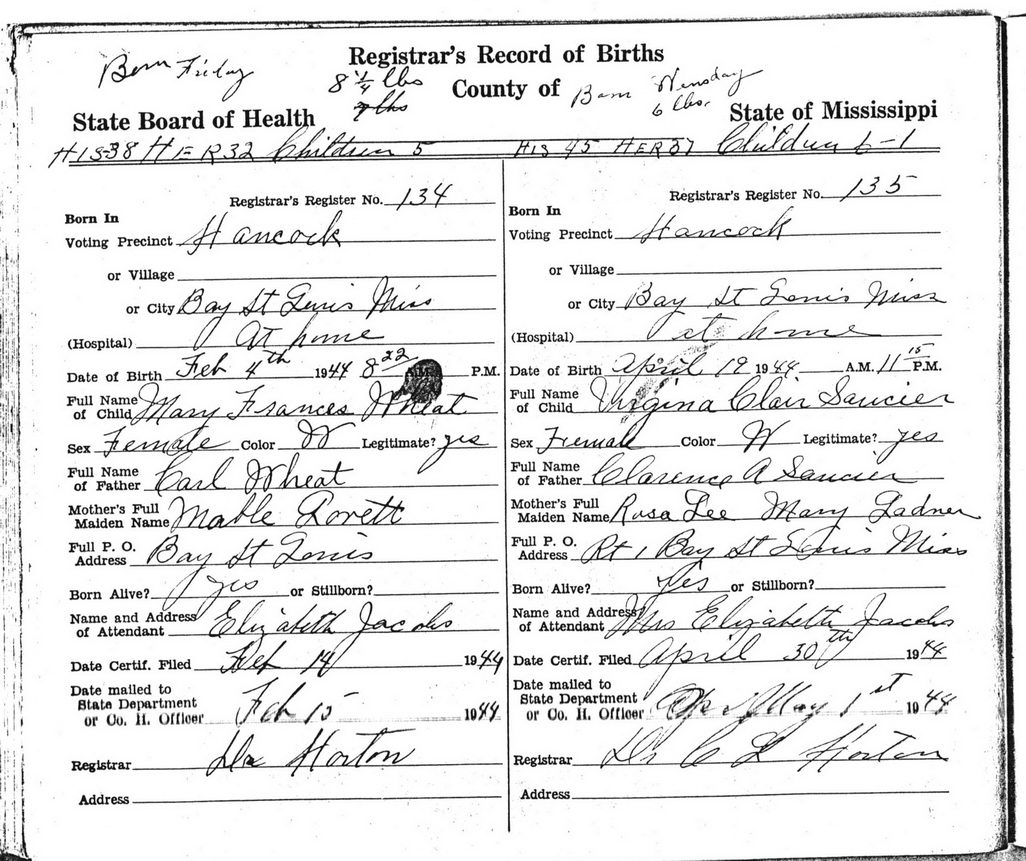 Registrar's Record of Births
Born Friday
8 1/4 lbs
7 lbs
County of
Born Wensday
6 lbs.
State Board of Health
State of Mississippi
HIS 38 HER 32 Children 5
HIS 45 HER 37 Children 6-1
Registrar's Register No. 134
Born In
Voting Precinct Hancock
or Village
or City Bay St Louis Miss
(Hospital) At home
Date of Birth Feb 4th 1944 8 22 P.M.
Full Name
of Child Mary Frances Wheat
Sex Female Color W Legitimate? yes
Full Name
of Father Carl Wheat
Mother's Full
Maiden Name Mable Lovett
Full P. O.
Address Bay St Louis
Born Alive? yes or Stillborn?
Name and Address
of Attendant Elizabeth Jacobs
Date Certif. Filed Feb 14 1944
Date mailed to
State Department
or Co. H. Officer Feb 15 1944
Registrar Dr Horton
Address
Registrar's Register No. 135
Born In
Voting Precinct Hancock
or Village
or City Bay St Louis Miss
(Hospital) at home
Date of Birth April 19 1944 A.M. 11 15 P.M.
Full Name
of Child Virgina Clair Saucier
Sex Female Color W Legitimate? yes
Full Name
of Father Clarence A Saucier
Mother's Full
Maiden Name Rosa Lee Mary Ladner
Full P. O.
Address Rt 1 Bay St Louis Miss
Born Alive? Yes or Stillborn?
Name and Address
of Attendant Mrs Elizabeth Jacobs
Date Certif. Filed April 30th 1944
Date mailed to
State Department
or Co. H. Officer May 1st 1944
Registrar Dr C L Horton
Address